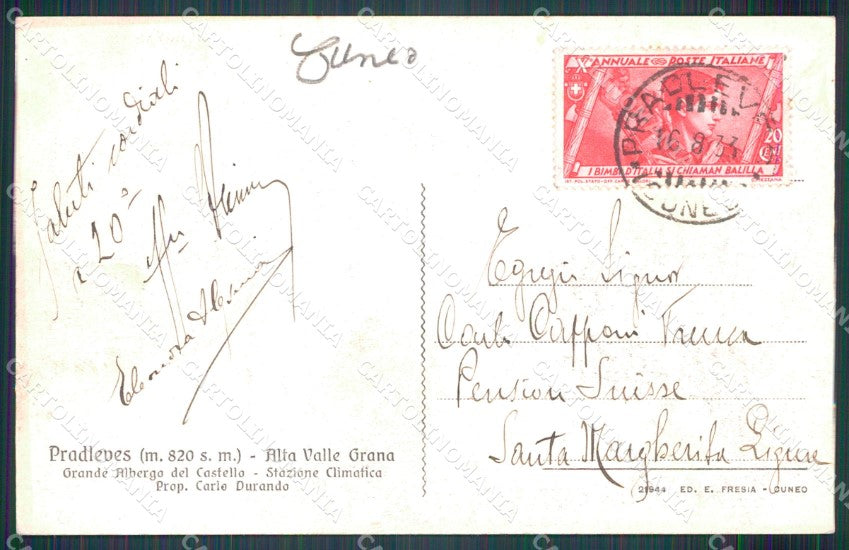 Cuneo
Saluti cordiali
a 20°
Eleonora
Pradleves (m. 820 s. m.) - Alta Valle Grana
Grande Albergo del Castello - Stazione Climatica
Prop. Carlo Durando
X° ANNUALE POSTE ITALIANE
20
CENT
I BIMBI D'ITALIA SI CHIAMAN BALILLA
PRADLEVES
16.8.33
CUNEO
Egregio Signor
Conte Capponi
Pension Suisse
Santa Margherita Ligure
21944 ED. E. FRESIA - CUNEO
CARTOLINOMANIA